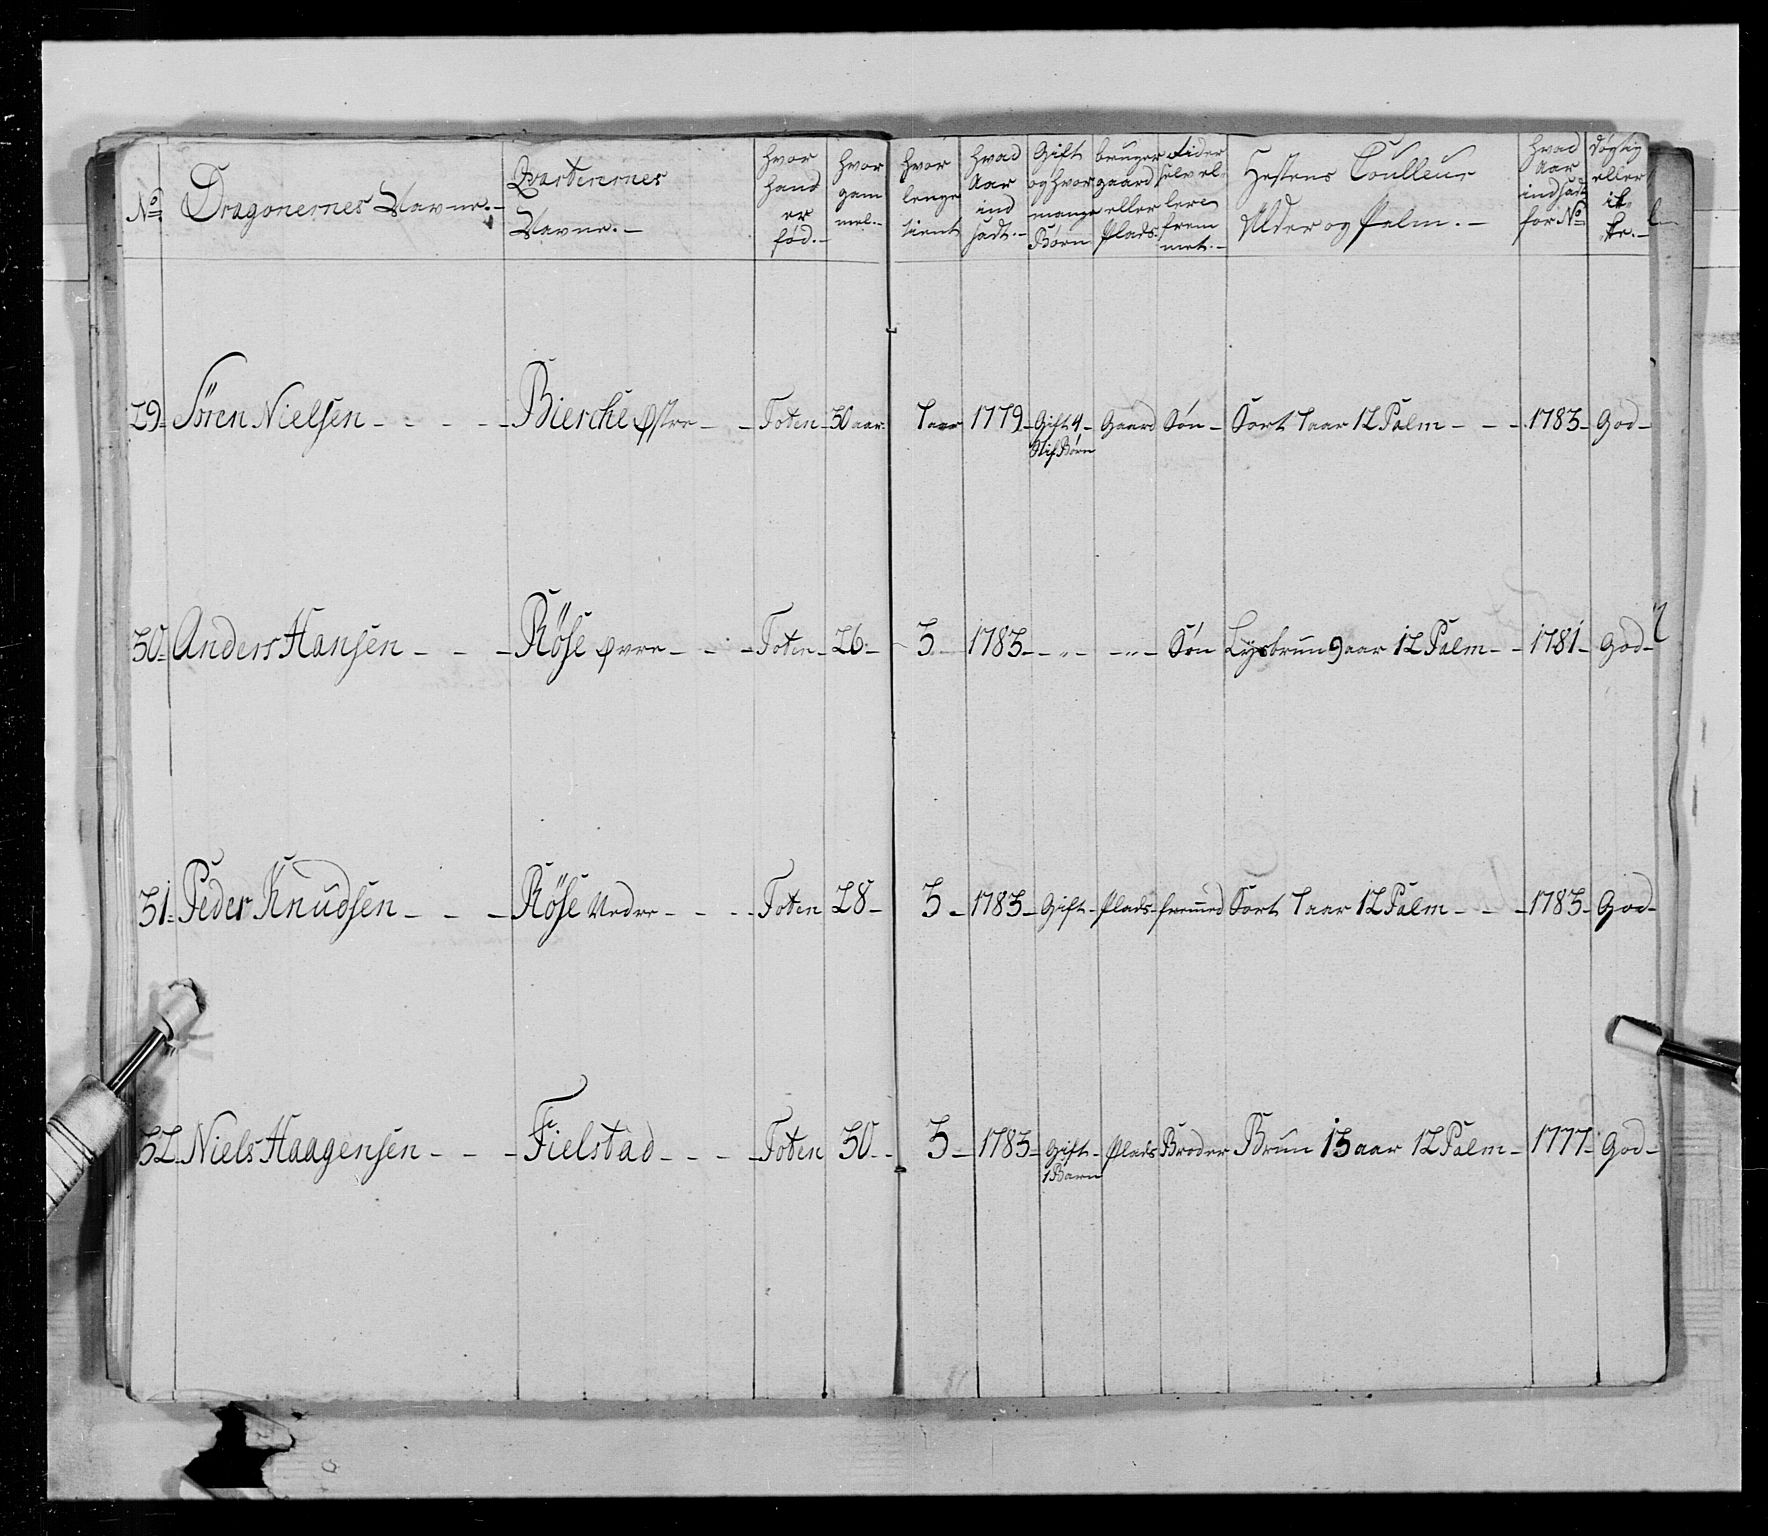 No Dragonernes Navne.- Qvarterernes Navne.- hvor hand er fød.- hvor gam mel.- hvor lenge tient hvad Aar ind sadt.- Gift og hvor mange Børn bruger gaard eller Plads. Rider selv el- lere frem met.- Hestens Coulleur Alder og Palm.- hvad Aar indsadt for No døgtig eller ik- ke.-
29- Sören Nielsen - - - - - Bierche Østre - - Toten- 30 aar- 7 aar 1779- Gift 4- Gaard Søn- Sort 7 aar 12 Palm - - - 1783- God-
Stif Børn
30- Anders Hansen - - - Röse Øvre - - - Toten- 26- 3- 1783- - „ - - „ - Søn Lysbrun 9 aar 12 Palm - - 1781- God-
31- Peder Knudsen - - - Röse Nedre - - - - Toten 28- 3- 1783- Gift- Plads- fremed Sort 7 aar 12 Palm - - - 1783- God-
32- Niels Haagensen - - - Fielstad - - - - Toten 30- - 3- 1783- Gift- Plads Broder Brun 13 aar 12 Palm- 1777- God-
1 Barn